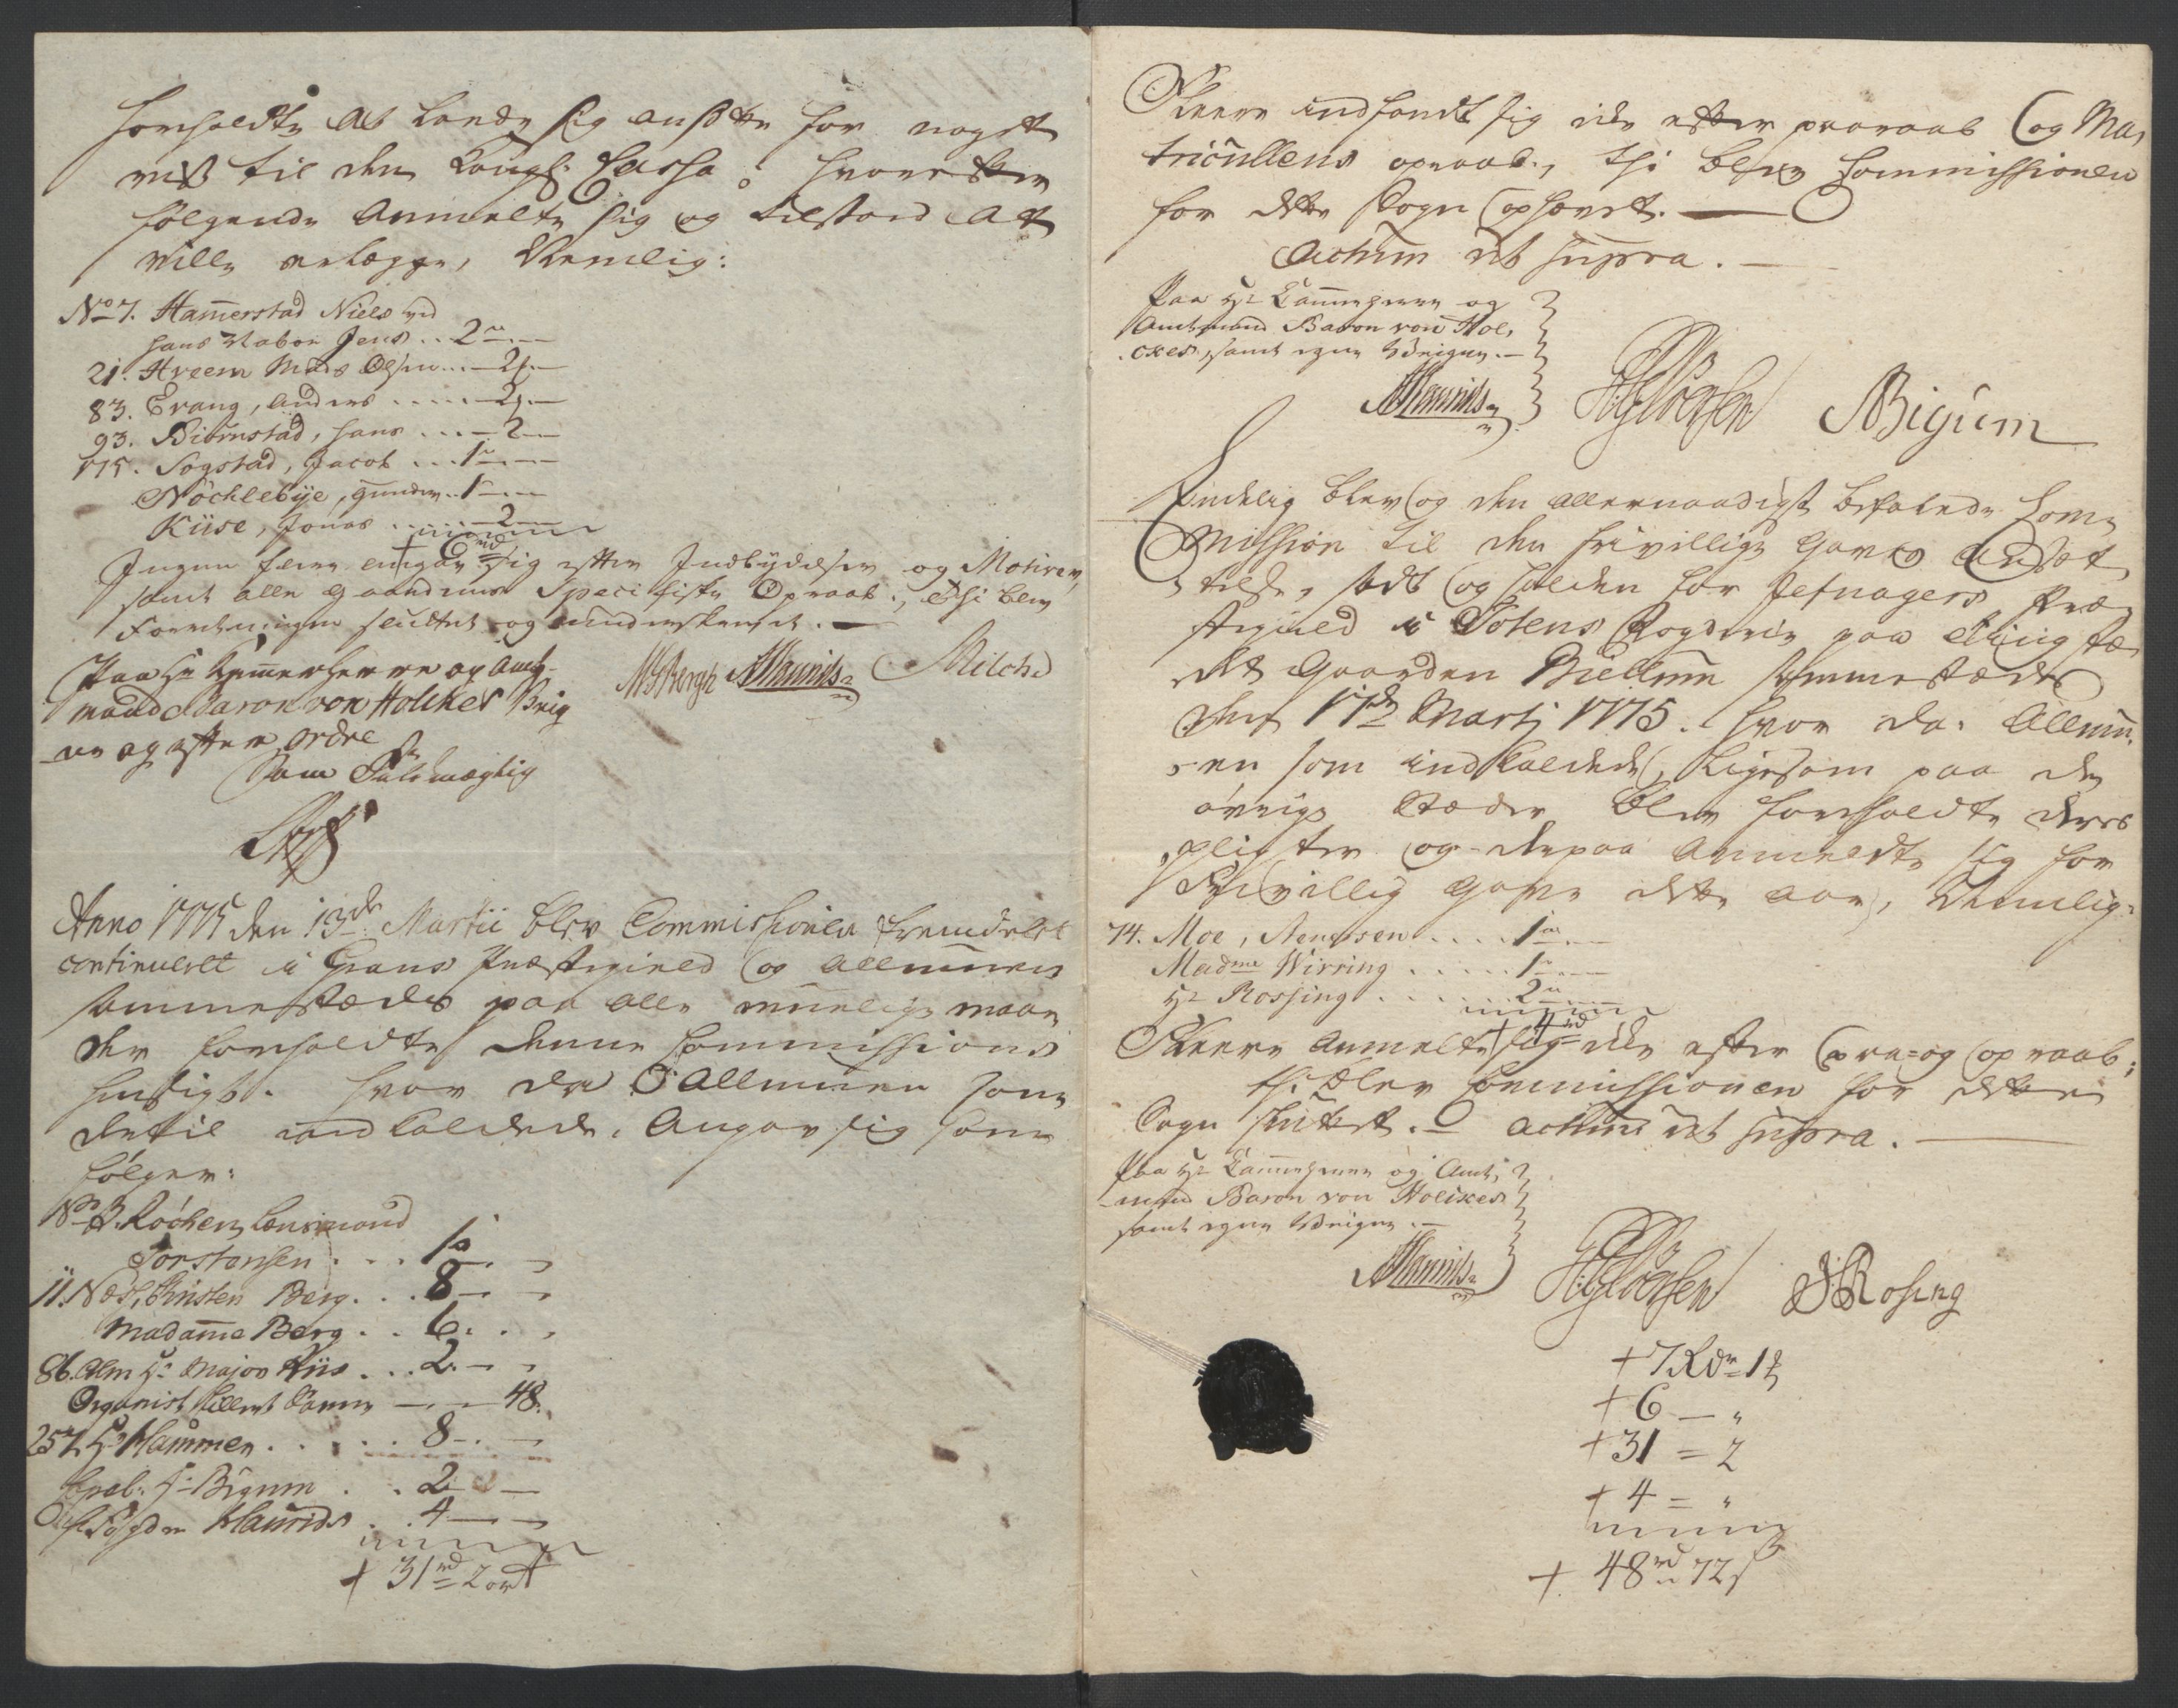 forholdte at lande sig ansætte for noget
vist til den Kongl: Cassa; hvorefter
følgende anmelte sig og tilstoed at
ville erlægge, Nemlig:
No 7. Hamerstad Niels ved
hans Nabor Jens .. 2 —
21. Hveem Mads Olsen ... — 2 —
83. Evang, Anders ..... — 2 —
93. Biørnstad, hans ... — 2 —
115. Sogstad, Jacob ... 1 —
Nøchlebÿe, Gunder .. 1 —
Kiise, Jonas ..... — 2 —
+ 6 rd
Ingen fleere angav sig efter Indbydelsen og Motiver,
samt alle gaardenes Specifiske Opraab, thi blev
Forretningen sluttet og underskrevet. —
Paa Hr Kamerherre og Amt-
mand Baron von Holckes Veig-
ne og efter ordre
Som Fuldmægtig
NSBergh MMaurids Milch
Anno 1775 den 13de Martii blev Commissionen fremdelet
continueret i Grans Præstegield og Allmuen
sammestæds paa alle muelige maa-
der forholdte denne Commissions
hensigt. Hvor da Allmuen som
dertil indkaldede, Angav sig som
følger:
No 3. Røchen Lensmand
Torstensen ... 1 —
11. Næs, Christen Berg ... 8 —
Madame Berg ... 6 —
86. Alm Hr Major Riis ... 2 —
Organist — 48.
257. Hr Hammer ..... 8 —
Capel: Hr Bigum .. 2 —
Fogden Maurids .. 4 —
+ 31 rd 2 ort
Fleere indfandt sig ikke efter paaraab og Ma-
triculens opraab, thi blev Commissionen
for dette Sogn ophævet. —
Actum ut supra. —
Paa Hr Kammerherre og
Amtmand Baron von Hol-
ckes, samt egne Veigne. —
MMaurids NBigum
Endelig blev og den allernaadigst befalede Com-
mission til den frivillige Gaves Ansæt-
telse, sadt og holden for Jefnagers Præ-
stegield i Totens Fogderie paa Tingstæ-
det Gaarden Biellum sammestæds
den 17de Martj 1775. Hvor da Allmu-
en som indkaldede, ligesom paa de
øvrige stæder blev forholdte deres
pligter og derpaa anmeldte sig for
Frivillig Gave dette aar, Nemlig:
74. Moe, Arnesen .... 1 —
Madme Wirring ..... 1 —
Hr Rossing ..... 2 —
+ 4 rd
Fleere anmelte sig ikke efter paa- og opraab;
thi blev Commissionen for dette
Sogn sluttet. — Actum ut supra. —
Paa Hr Kammerherre og Amt-
mand Baron von Holckes
samt egne Veigne. —
MMaurids JRosing
+ 7 Rdr 1
+ 6 — "
+ 31 = 2
+ 4 = "
+ 48 rd 72 s